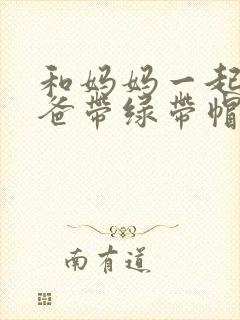 和妈妈一起
爸带绿带帽
南有道